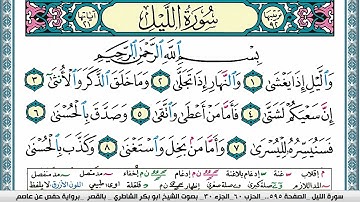 سُورَةُ اللَّيْلِ
بِسْمِ اللَّهِ الرَّحْمَٰنِ الرَّحِيمِ
وَاللَّيْلِ إِذَا يَغْشَىٰ ١ وَالنَّهَارِ إِذَا تَجَلَّىٰ ٢ وَمَا خَلَقَ الذَّكَرَ وَالْأُنثَىٰ ٣
إِنَّ سَعْيَكُمْ لَشَتَّىٰ ٤ فَأَمَّا مَنْ أَعْطَىٰ وَاتَّقَىٰ ٥ وَصَدَّقَ بِالْحُسْنَىٰ ٦
فَسَنُيَسِّرُهُ لِلْيُسْرَىٰ ٧ وَأَمَّا مَن بَخِلَ وَاسْتَغْنَىٰ ٨ وَكَذَّبَ بِالْحُسْنَىٰ
سورة الليل الصفحة ٥٩٥ الجزء ٣٠ الحزب ٦٠ بصوت الشيخ أبو بكر الشاطري برواية حفص عن عاصم